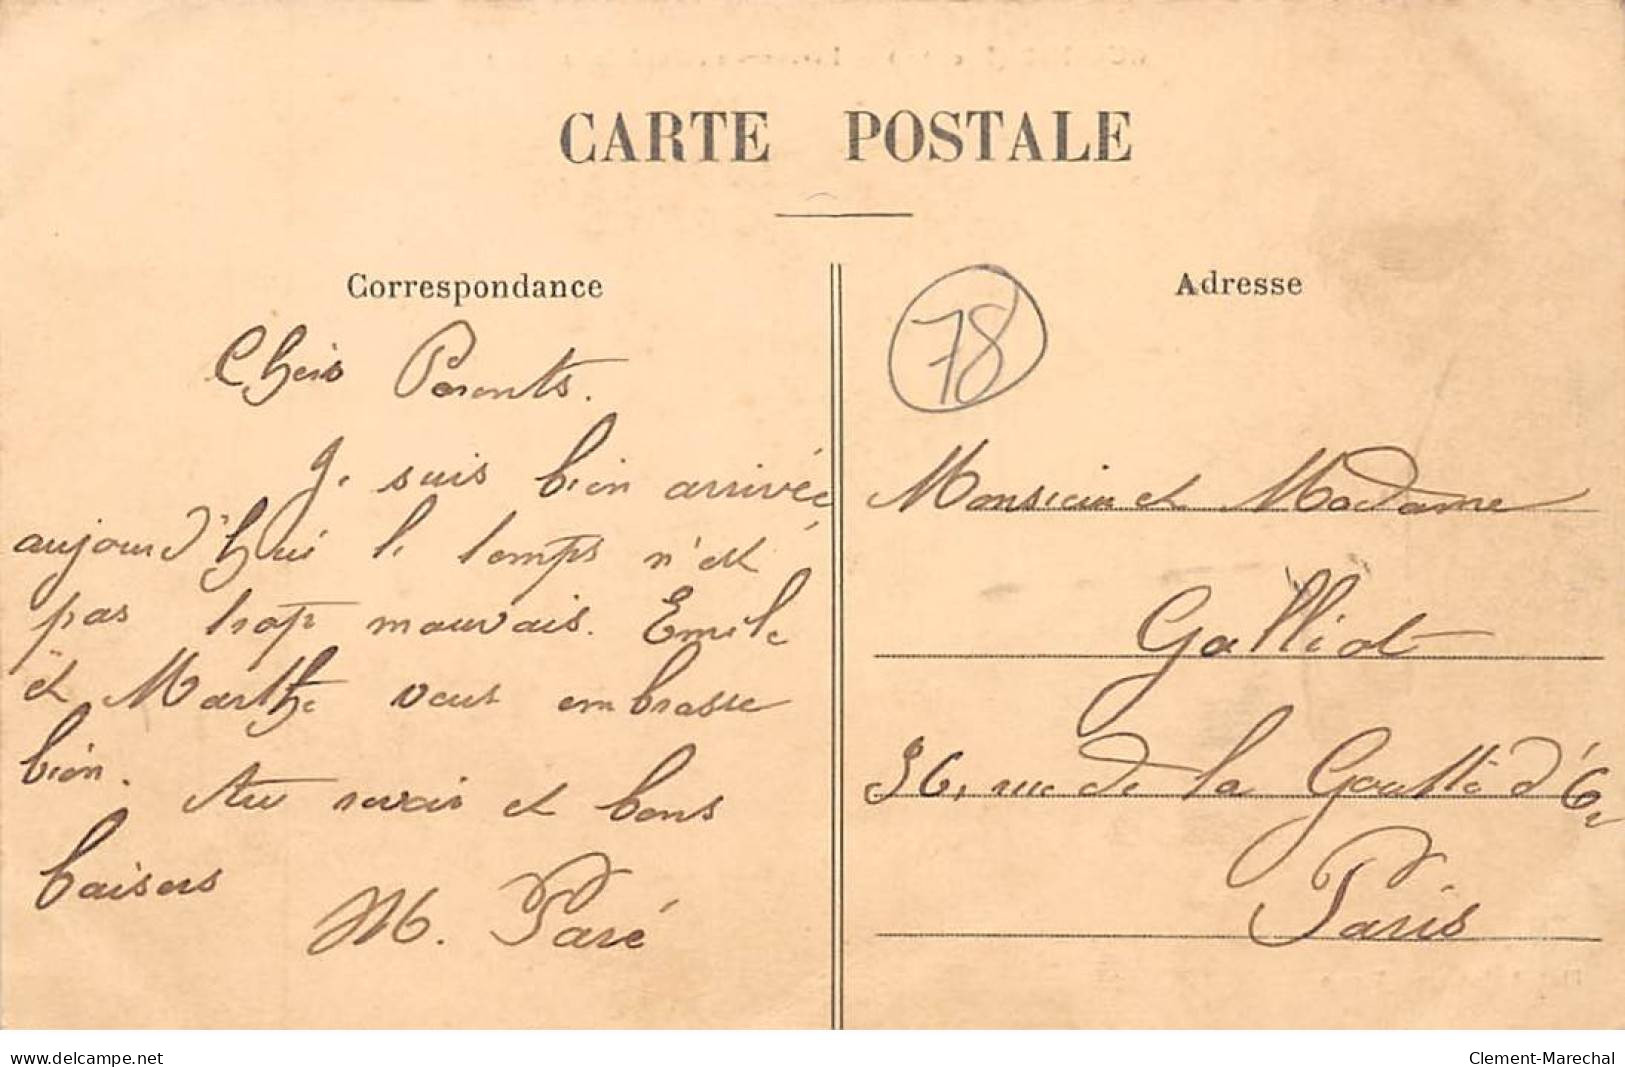 CARTE POSTALE
Correspondance
Chers Parents.
Je suis bien arrivée
aujourd'hui le temps n'est
pas trop mauvais. Emile
et Marthe vous embrasse
bien.
Au revoir et bons
baisers
M. Paré
Adresse
78
Monsieur et Madame
Galliot
36, rue de la Goutte d'Or
Paris
www.delcampe.net
Clement-Marechal